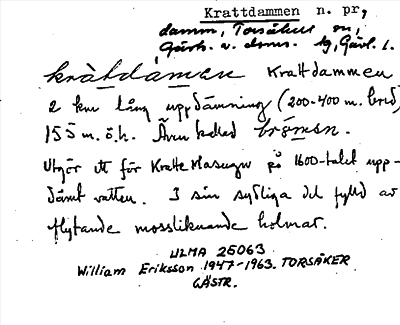 Krattdammen n. pr,
damm, Torsåker sn,
Gästr. v. doms. tg, Gävl. l.
kràtdàmen Krattdammen
2 km lång uppdämning (200-400 m. bred)
155 m. ö. h. Även kallad
Utgör ett för Kratte Masugn på 1600-talet upp-
dämt vatten. I sin sydliga del fylld av
flytande mossliknande holmar.
ULMA 25063
William Eriksson 1947-1963. TORSÅKER
GÄSTR.